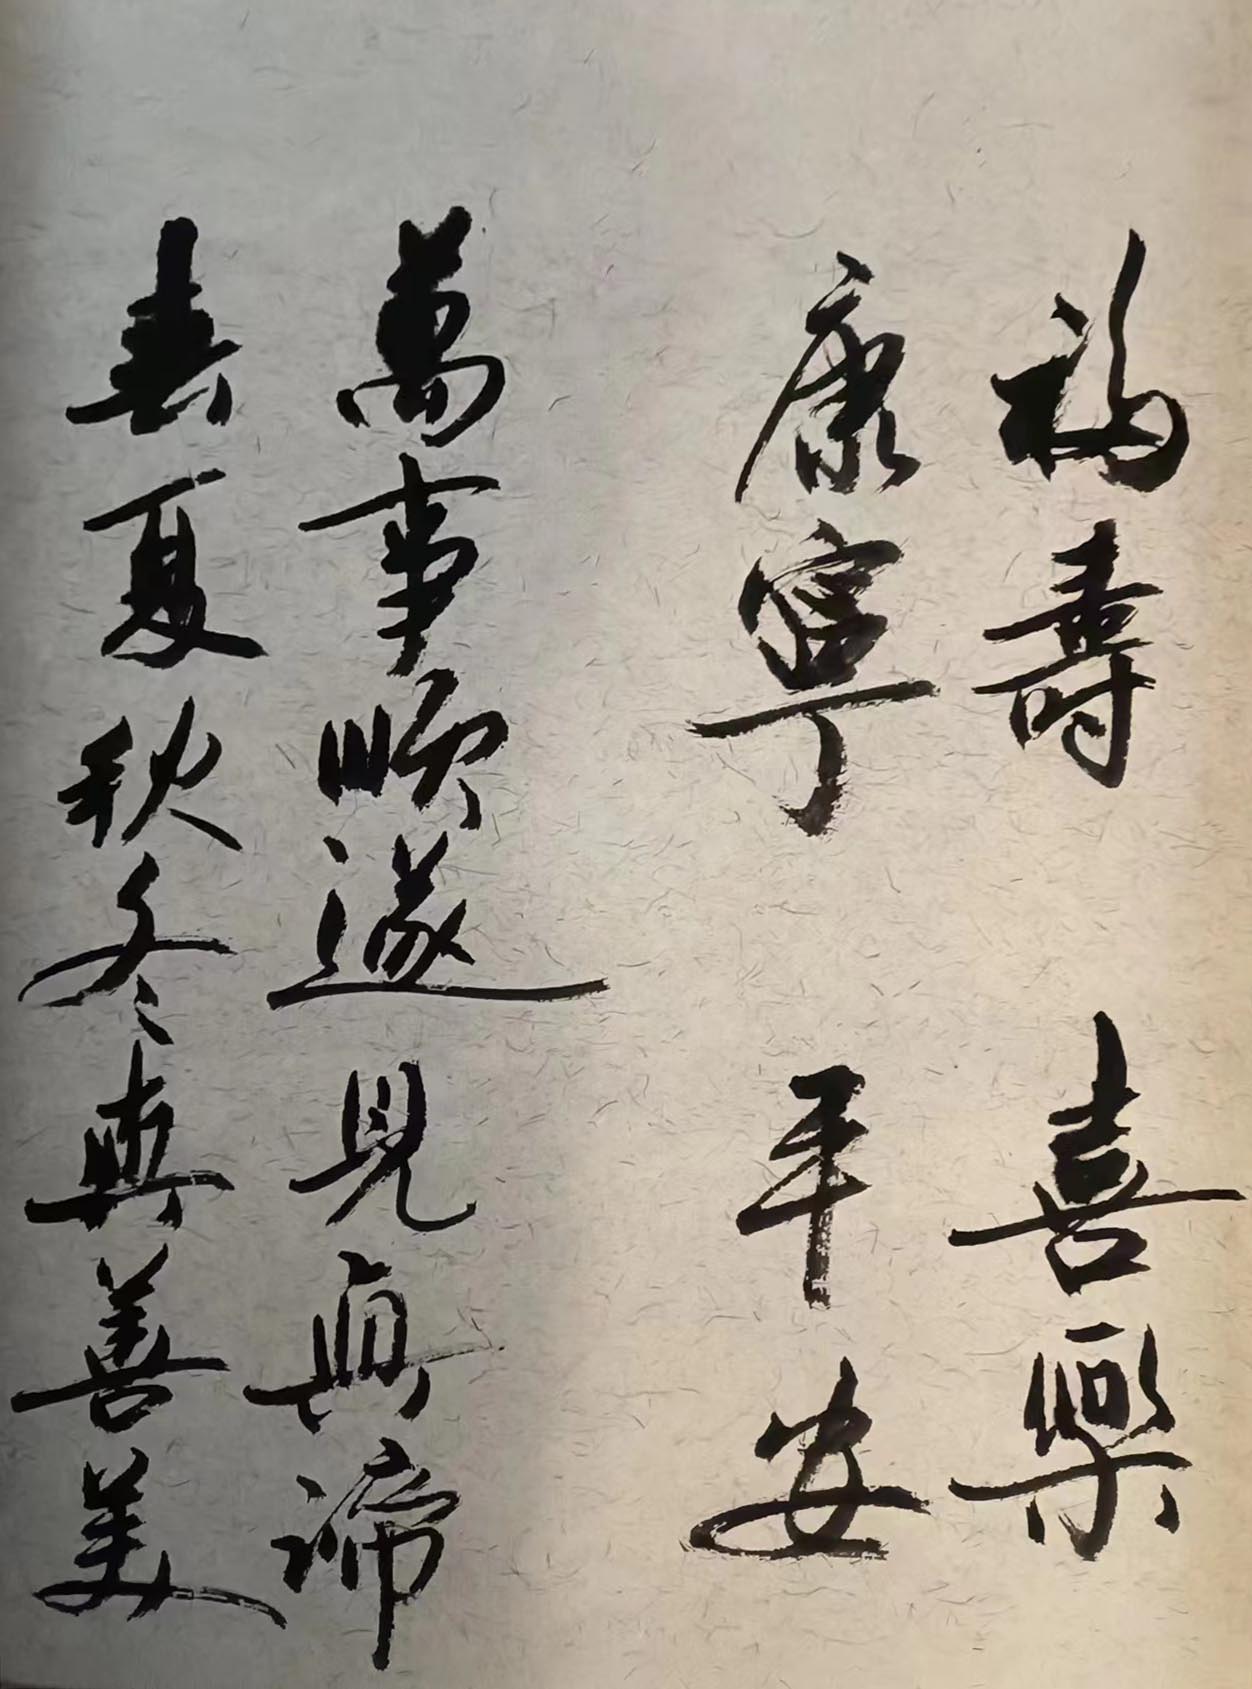 福壽 喜樂
康寧 平安
萬事順遂見真諦
春夏秋冬真善美